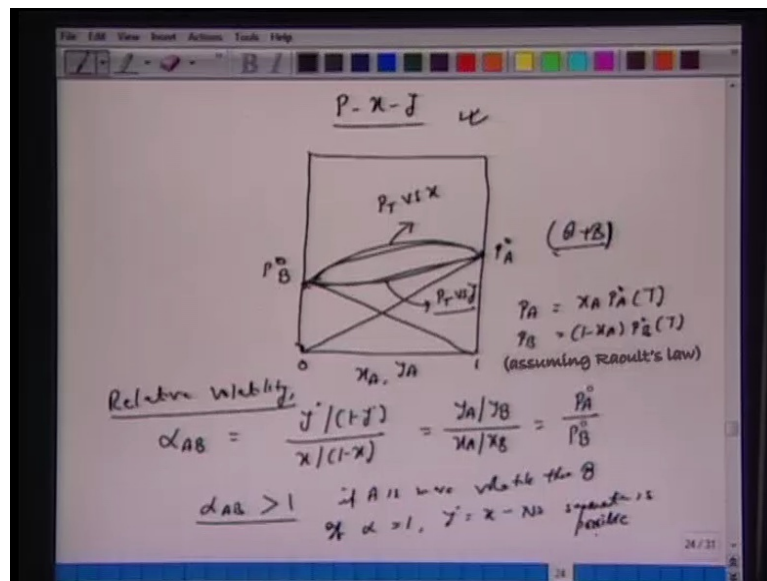 File Edit View Insert Actions Tools Help
B I
P-x-y
P_T vs x
P°_B
P°_A
(A+B)
P_T vs y
P_A = x_A P°_A (T)
P_B = (1-x_A) P°_B (T)
(assuming Raoult's law)
0 1
x_A, y_A
Relative volatility,
α_AB = y*/(1-y*) / x/(1-x) = y_A/y_B / x_A/x_B = P°_A / P°_B
α_AB > 1 if A is more volatile than B
If α = 1, y* = x - No separation is possible
24/31
24